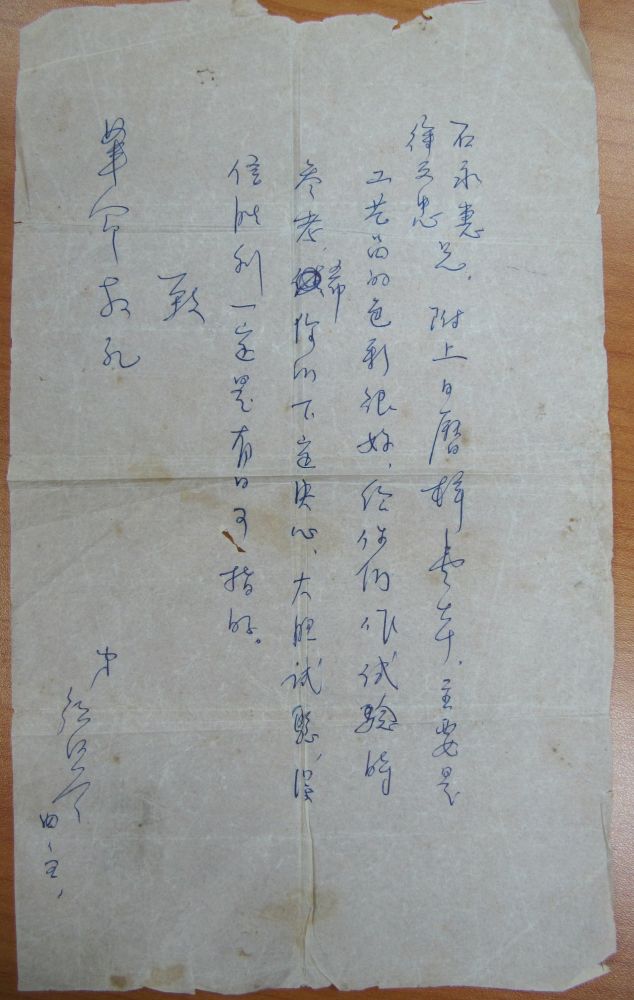 石永惠
徐文忠兄，附上日历样壹本，主要是
工艺品的色彩很好，给你们作试验时
参考，希你们下定决心，大胆试验，深
信胜利一定是有日可指的。
致
革命敬礼
弟
四、三、